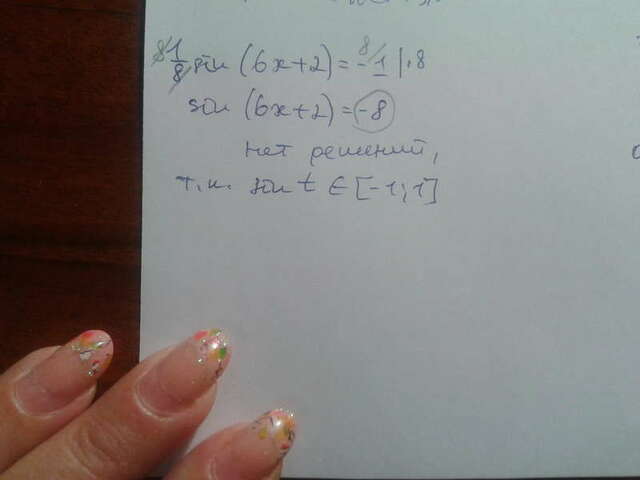 8\ 1/8 sin (6x+2) = -1 8/ |·8
sin (6x+2) = -8
нет решений,
т.к. sin t ∈ [-1;1]